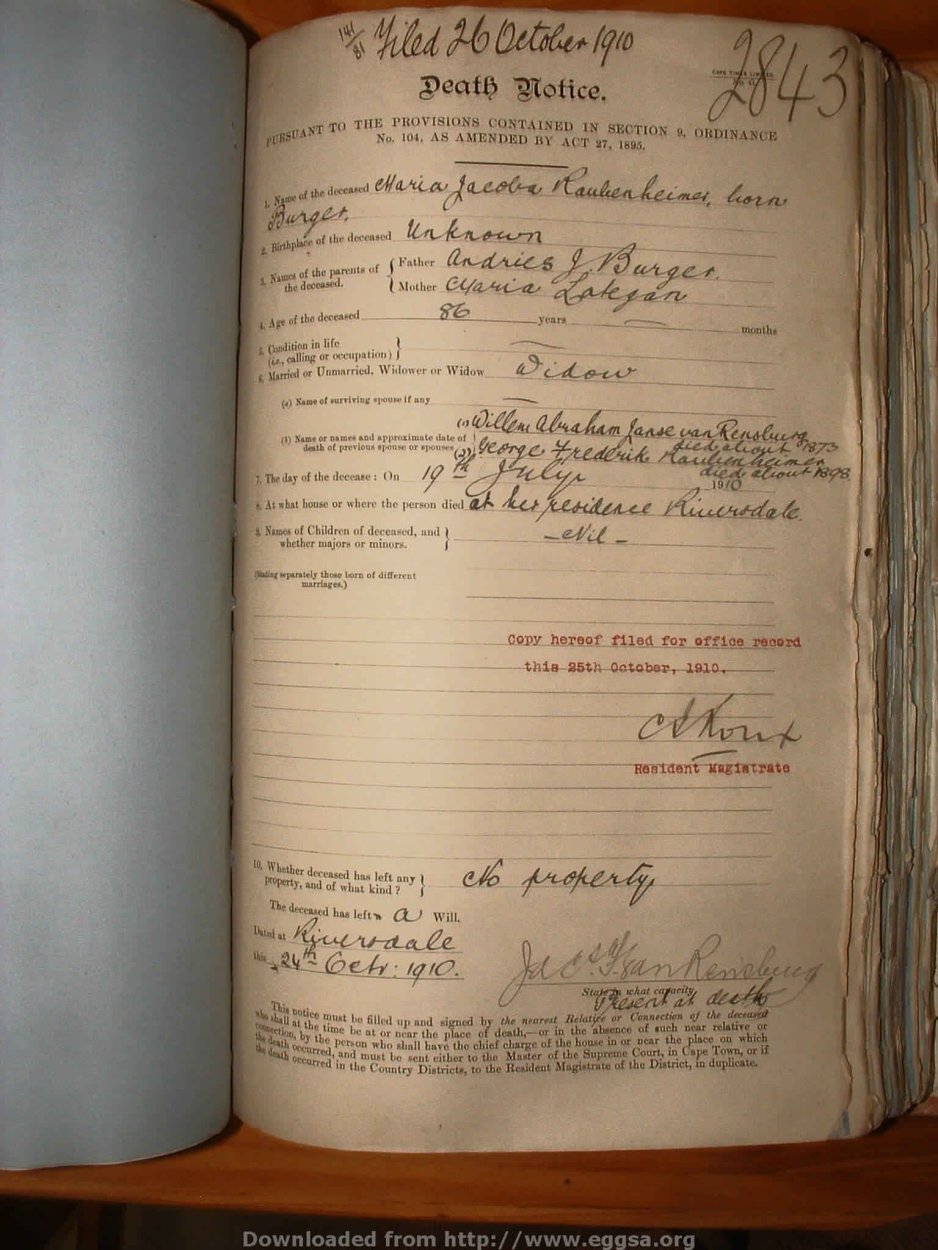 141/81 Filed 26 October 1910
2843
CAPE TIMES LIMITED
Death Notice.
PURSUANT TO THE PROVISIONS CONTAINED IN SECTION 9, ORDINANCE
No. 104, AS AMENDED BY ACT 27, 1895.
1. Name of the deceased Maria Jacoba Raubenheimer, born
Burger.
2. Birthplace of the deceased Unknown
3. Names of the parents of the deceased. { Father Andries J. Burger.
Mother Maria Lategan
4. Age of the deceased 86 years — months
5. Condition in life (i.e., calling or occupation) } —
6. Married or Unmarried, Widower or Widow Widow
(a) Name of surviving spouse if any —
(b) Name or names and approximate date of death of previous spouse or spouses (1) Willem Abraham Janse van Rensburg died about 1873
(2) George Frederik Raubenheimer died about 1898
7. The day of the decease: On 19th July 1910
8. At what house or where the person died at her residence Riversdale.
9. Names of Children of deceased, and whether majors or minors. } - Nil -
(Stating separately those born of different marriages.)
Copy hereof filed for office record
this 25th October, 1910.
Resident Magistrate
10. Whether deceased has left any property, and of what kind? } No property
The deceased has left a Will.
Dated at Riversdale
this 24th Octr: 1910.
van Rensburg
State in what capacity
Present at death
This notice must be filled up and signed by the nearest Relative or Connection of the deceased
who shall at the time be at or near the place of death,—or in the absence of such near relative or
connection, by the person who shall have the chief charge of the house in or near the place on which
the death occurred, and must be sent either to the Master of the Supreme Court, in Cape Town, or if
the death occurred in the Country Districts, to the Resident Magistrate of the District, in duplicate.
Downloaded from http://www.eggsa.org